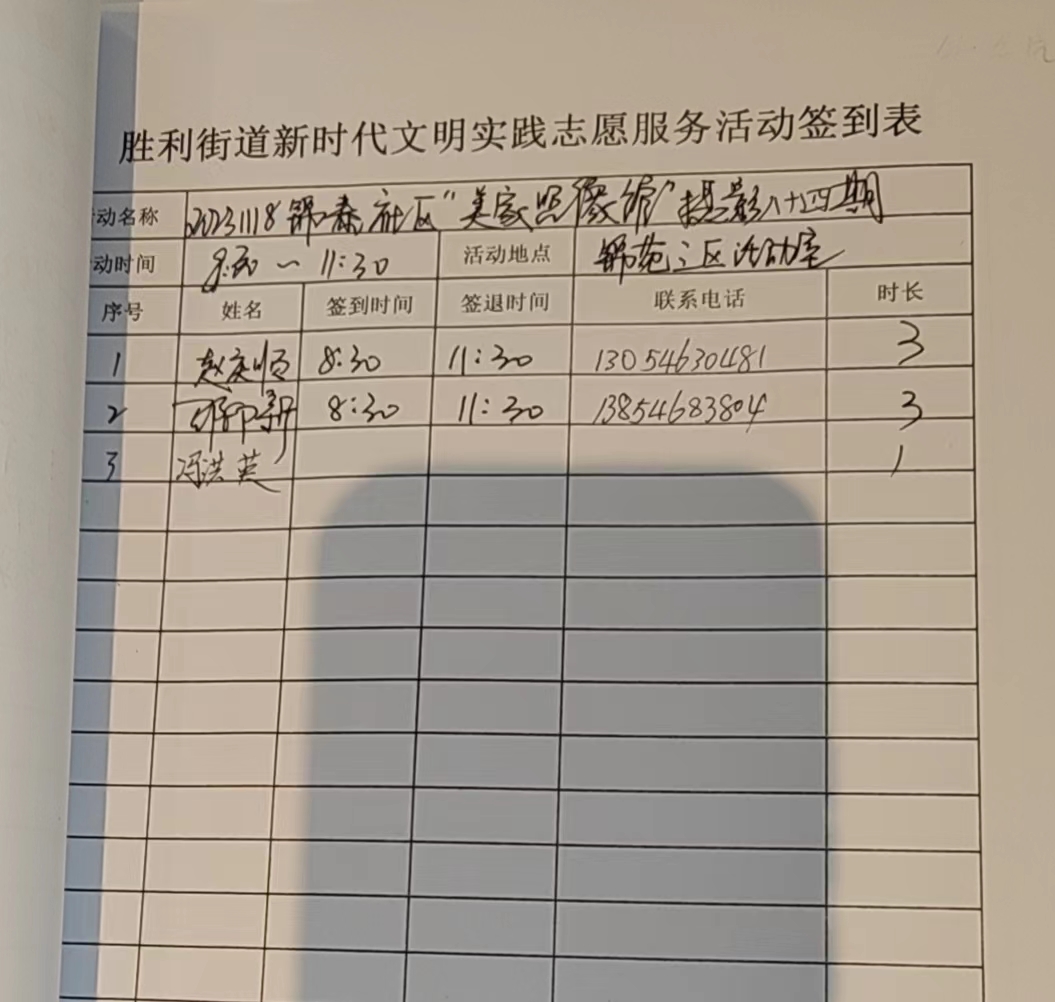 胜利街道新时代文明实践志愿服务活动签到表
动名称 20231118锦泰社区"美家照像馆"摄影八十四期
动时间 8:30 ~ 11:30 活动地点 锦苑三区活动室
序号 姓名 签到时间 签退时间 联系电话 时长
1 赵庆顺 8:30 11:30 13054630481 3
2 新 8:30 11:30 13854683804 3
3 冯洪英 1